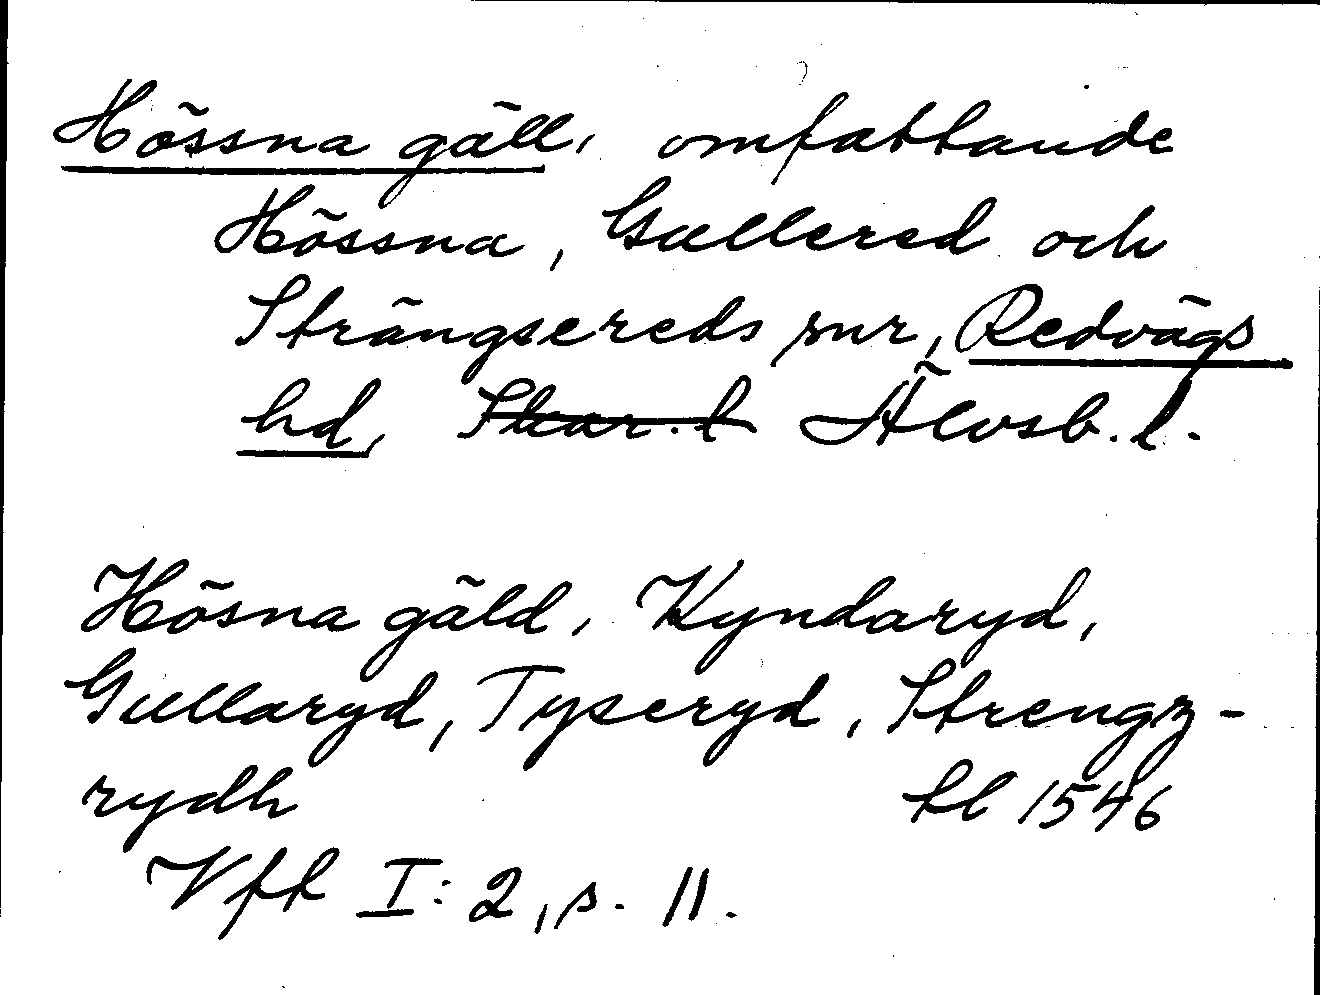 Hössna gäll, omfattande
Hössna, Gullered och
Strängsereds snr, Redvägs
hd, Skar. l Älvsb. l.
Hösna gäld, Kyndaryd,
Gullaryd, Tyseryd, Strengz-
rydh tl 1546
Vft I:2, s. 11.